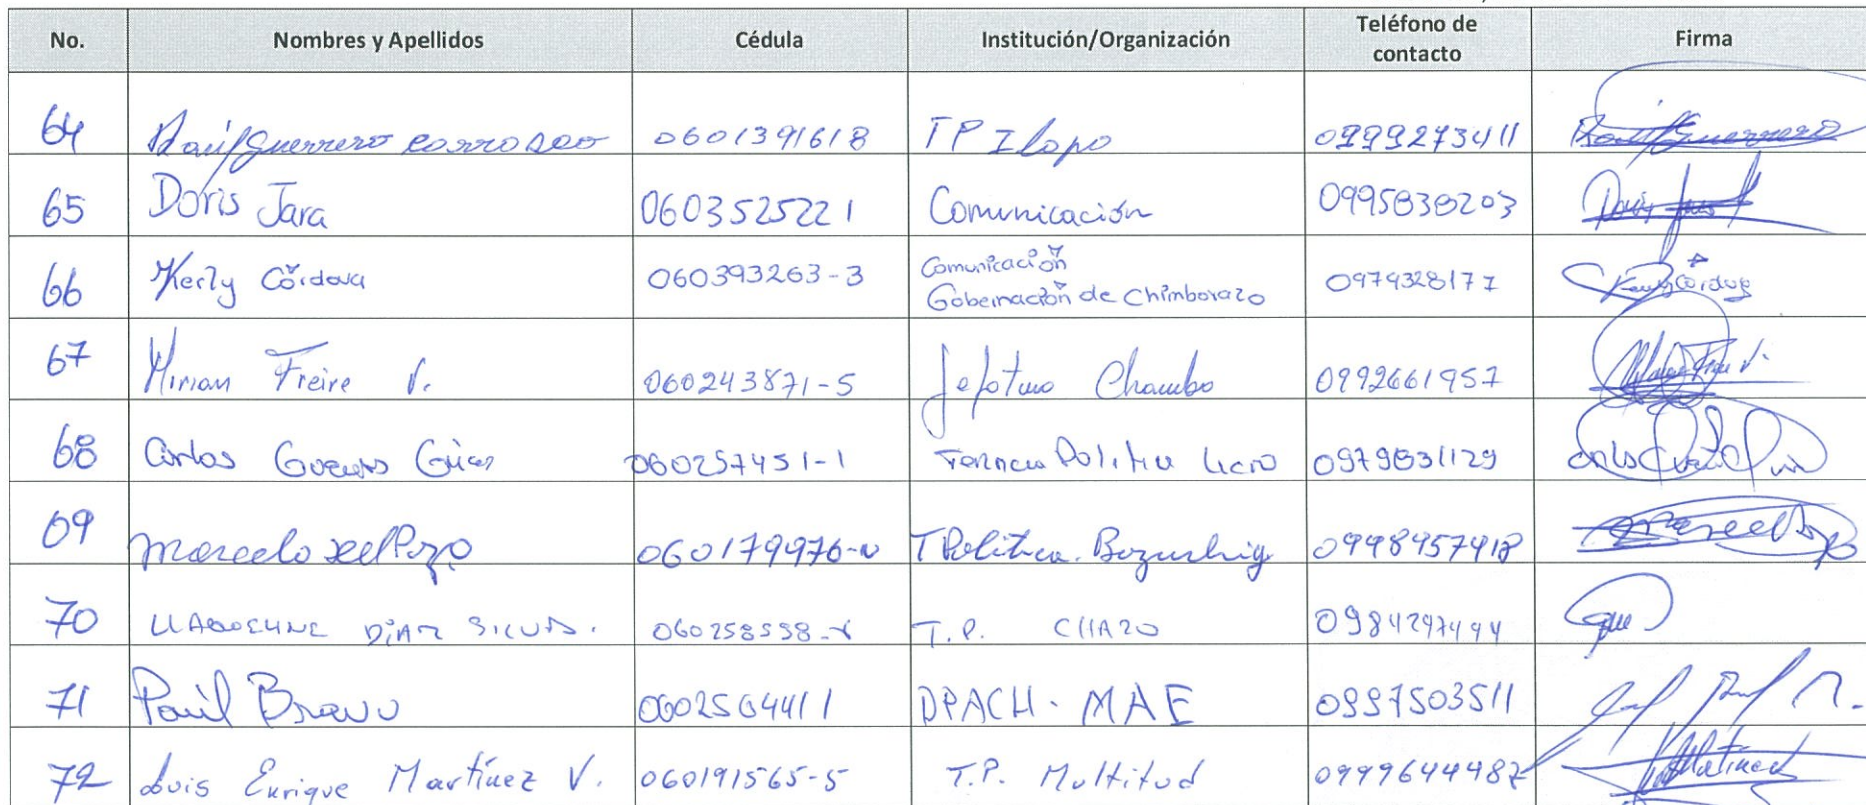 No. Nombres y Apellidos Cédula Institución/Organización Teléfono de contacto Firma
64 Raúl Guerrero Carrasco 0601391618 TP Ilapo 0999273411 Raúl Guerrero
65 Doris Jara 0603525221 Comunicación 0995838203 Doris Jara
66 Kerly Córdova 060393263-3 Comunicación Gobernación de Chimborazo 0979328177 Kerly Córdova
67 Mirian Freire V. 060243871-5 Jefatura Chambo 0992661957
68 Carlos 060257451-1 Tenencia Politica Licto 0979831129
69 Marcelo del Pozo 060179976- T Politica. 0998957918
70 DIAZ SILVA. 060258598- T.P. CHAZO 0984297494
71 Paúl Bravo 0602564411 DPACH - MAE 0997503511
72 Luis Enrique Martínez V. 060191565-5 T.P. Multitud 0999644487